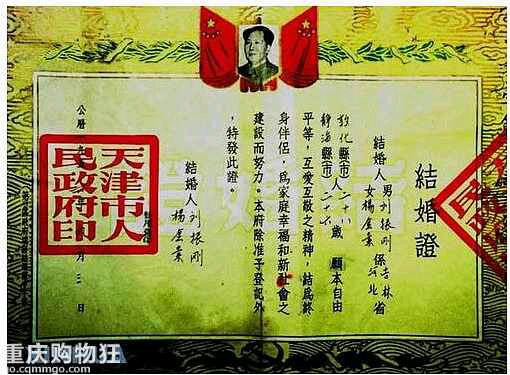 結婚證
結婚人男刘振剛係吉林省
女楊金素河北
敦化縣(市)人二十八歲願本自由
靜海縣(市)二十六
平等，互愛互敬之精神，結爲終
身伴侶，爲家庭幸福和新社會之
建設而努力。本府除准予登記外
，特發此證。
結婚人刘振剛
楊金素
公曆
月三日
天津市人
民政府印
重庆购物狂
go.cqmmgo.com